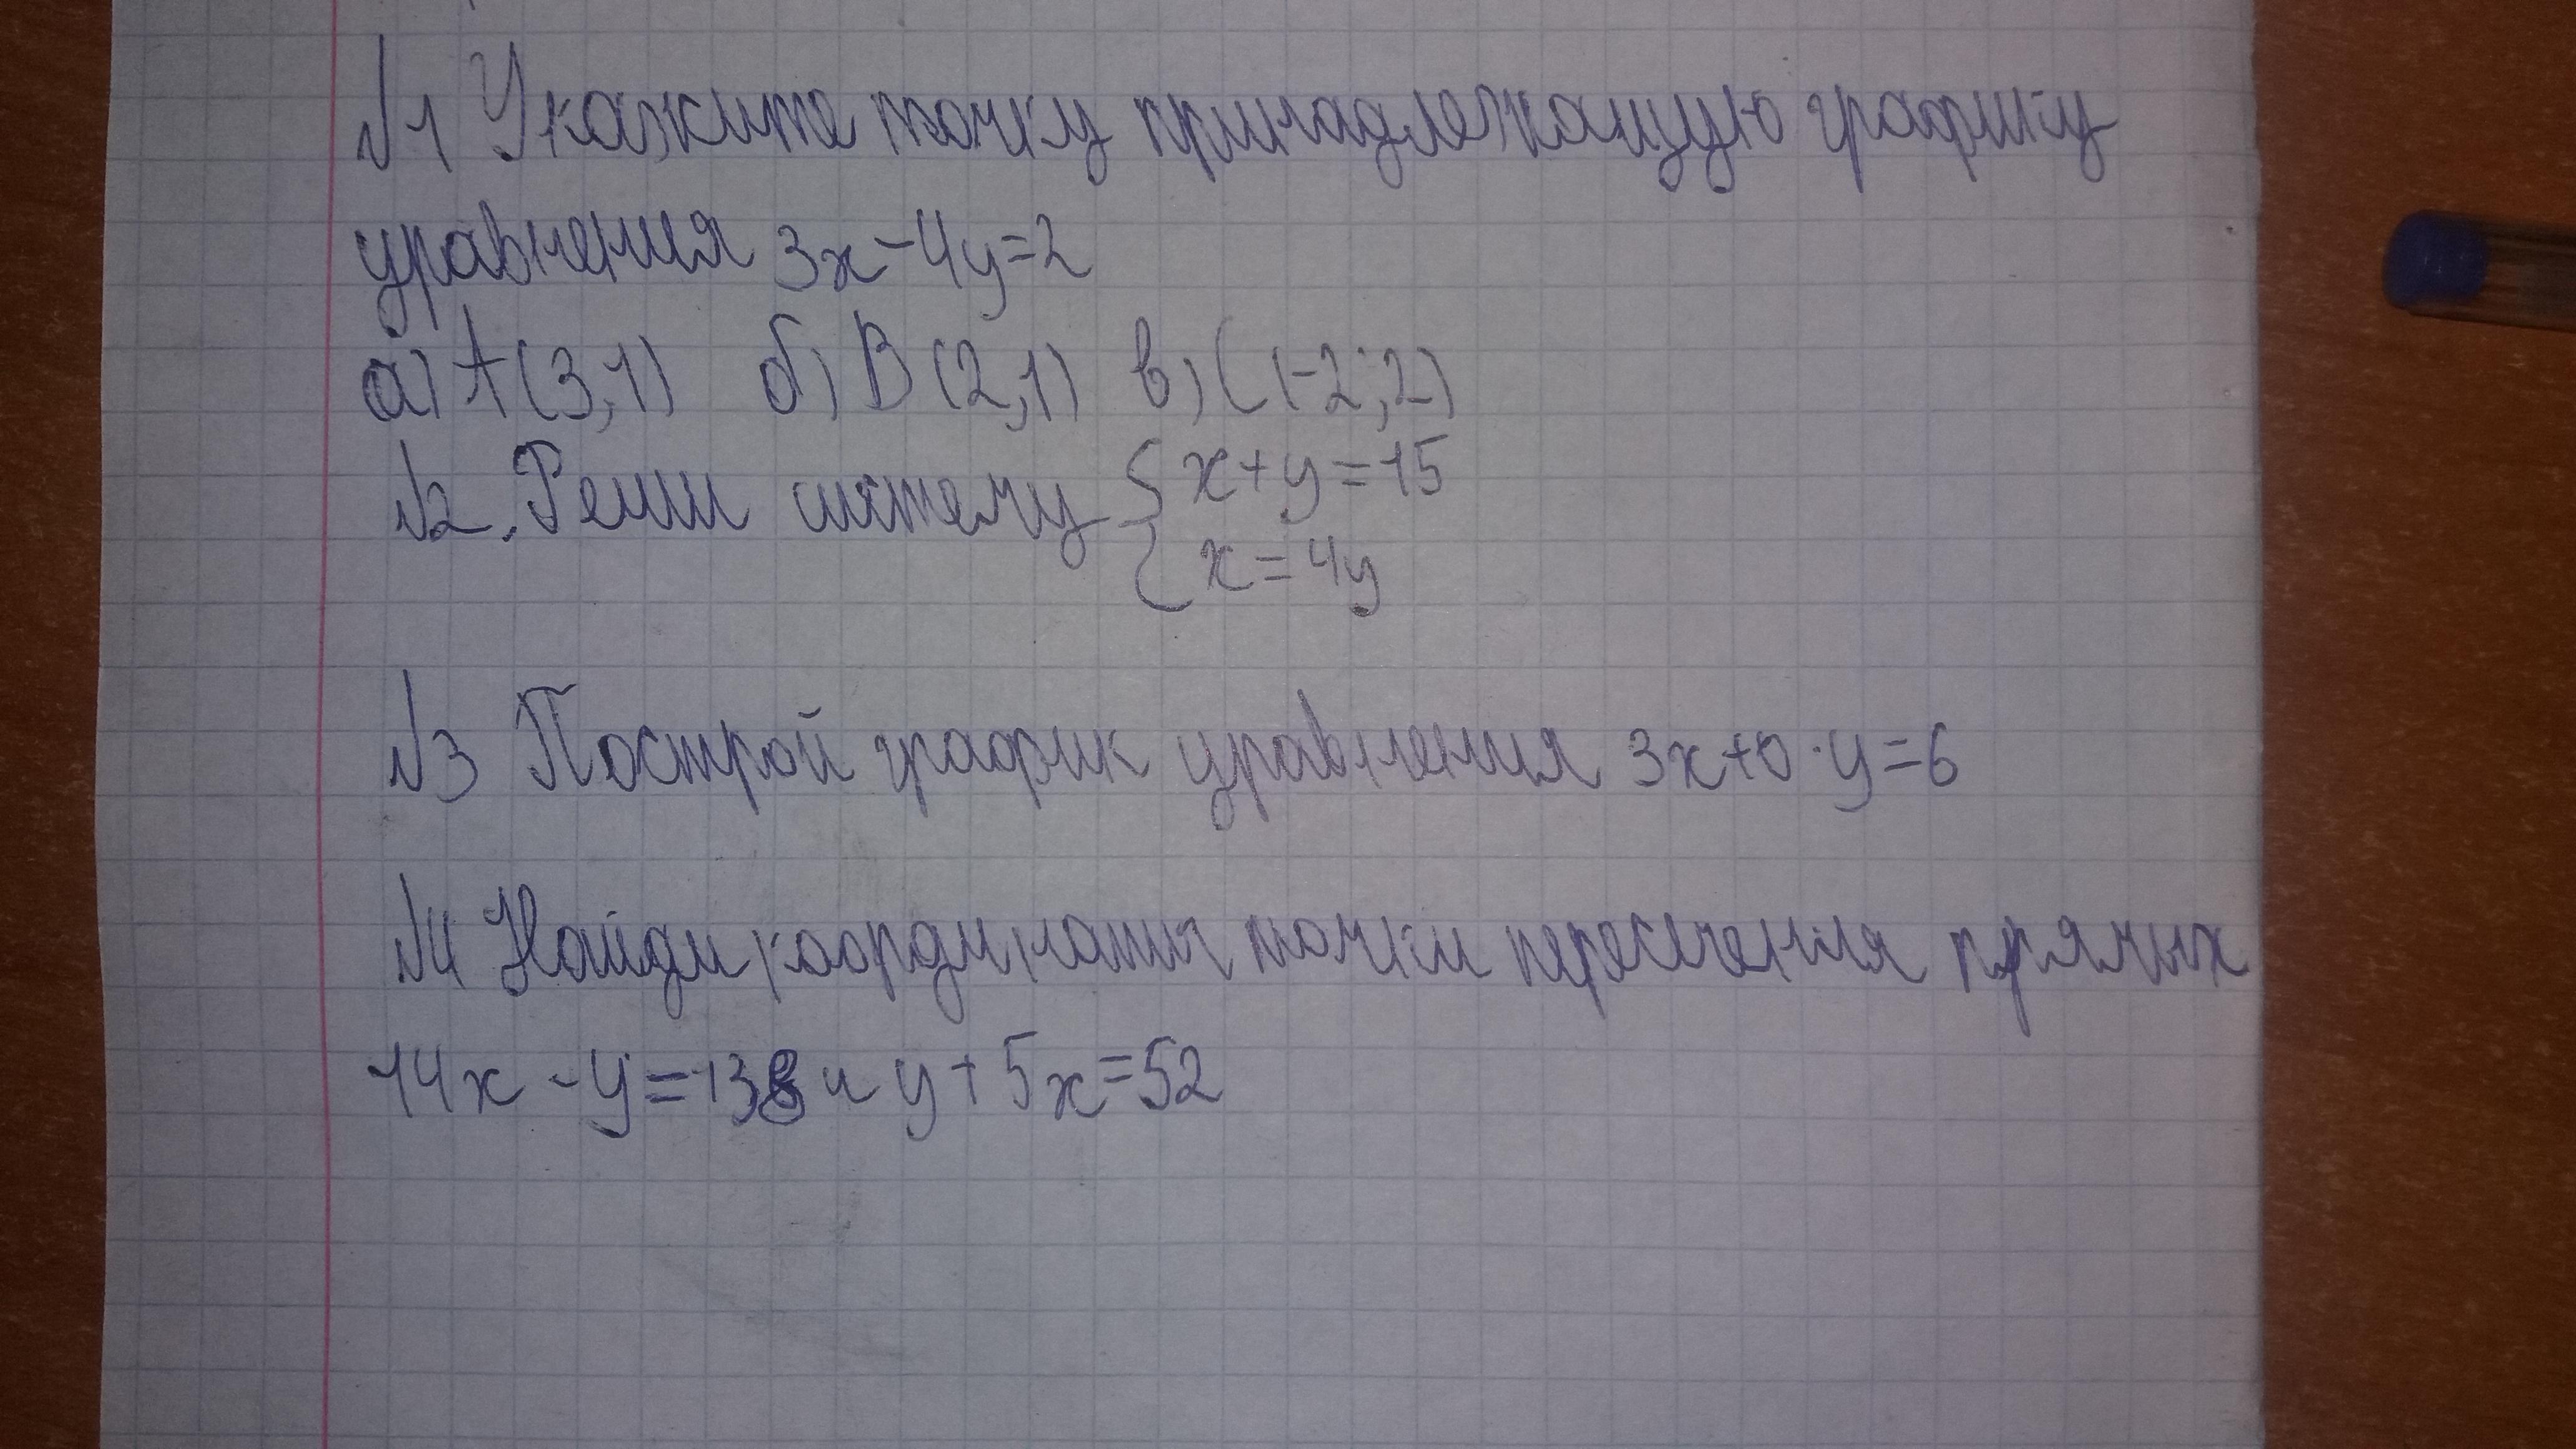 №1 Укажите точку принадлежащую графику
уравнения 3x-4y=2
а) A(3,1) б) B(2,1) в) C(-2;2)
№2. Реши систему { x+y=15
x=4y
№3 Построй график уравнения 3x+0·y=6
№4 Найди координаты точки пересечения прямых
14x-y=138 и y+5x=52